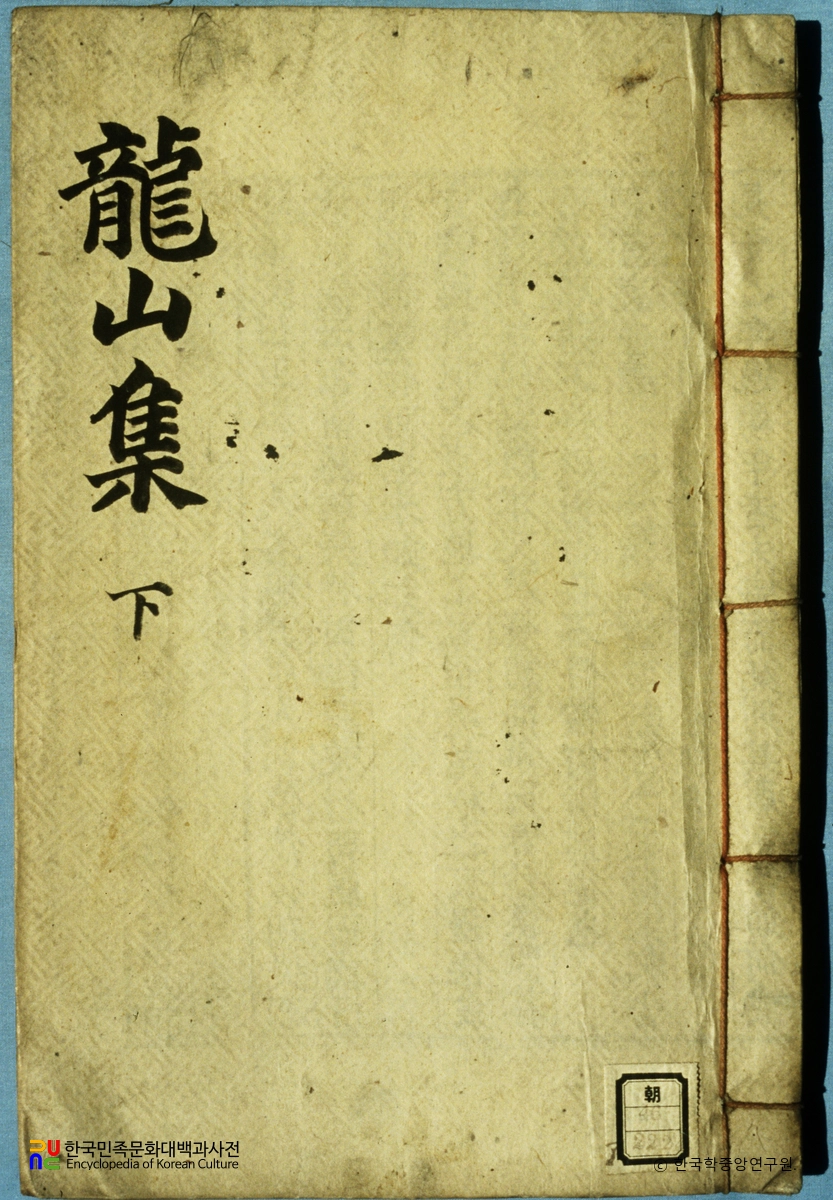 龍山集
下
朝
46
222
한국민족문화대백과사전
Encyclopedia of Korean Culture
© 한국학중앙연구원